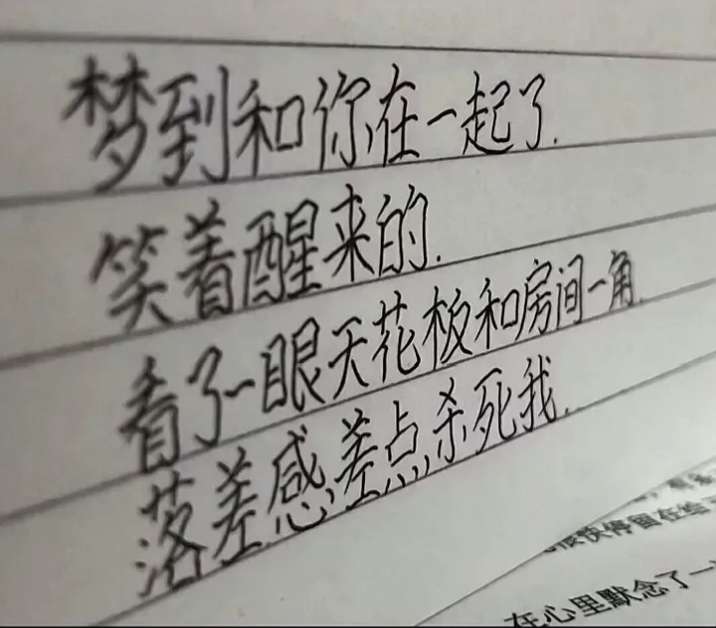 梦到和你在一起了.
笑着醒来的.
看了一眼天花板和房间一角.
落差感差点杀死我.
很快停留在给
在心里默念了一